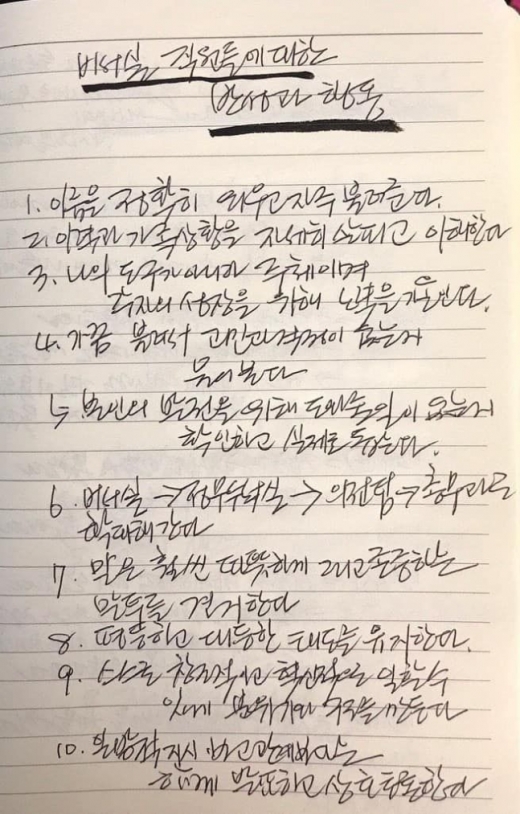 비서실 직원들에 대한
반성과 행동
1. 이름을 정확히 외우고 자주 불러준다.
2. 이력과 가족상황을 자세히 살피고 이해한다
3. 나의 도구가 아니라 주체이며
각자의 성장을 위해 노력을 기울인다.
4. 가끔 불러서 고민과 걱정이 없는지
물어본다
5. 본인의 발전을 위해 도와줄 일이 없는지
확인하고 실제로 돕는다.
6. 비서실 → 정무부시장실 → 의전팀 → 총무과로
확대해 간다
7. 말은 훨씬 따뜻하게 그리고 존중하는
말투를 견지한다
8. 평등하고 대등한 태도를 유지한다.
9. 스스로 창조적이고 혁신적으로 일할 수
있게 분위기와 구조를 만든다
10. 일방적 지시
함께 발표하고 상호 토론한다